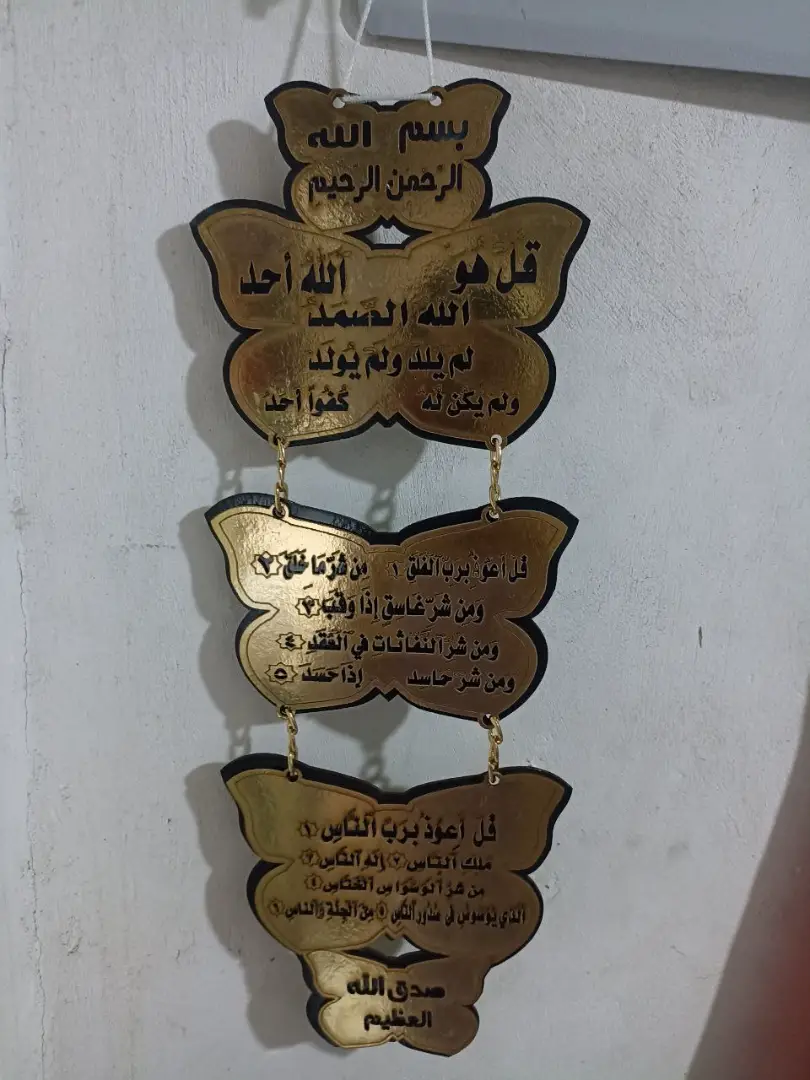 بسم الله
الرحمن الرحيم
قل هو الله أحد
الله الصمد
لم يلد ولم يولد
ولم يكن له كفوا أحد
قل أعوذ برب الفلق ١ من شر ما خلق ٢
ومن شر غاسق إذا وقب ٣
ومن شر النفاثات في العقد ٤
ومن شر حاسد إذا حسد ٥
قل أعوذ برب الناس ١
ملك الناس ٢ إله الناس ٣
من شر الوسواس الخناس ٤
الذي يوسوس في صدور الناس ٥ من الجنة والناس ٦
صدق الله
العظيم